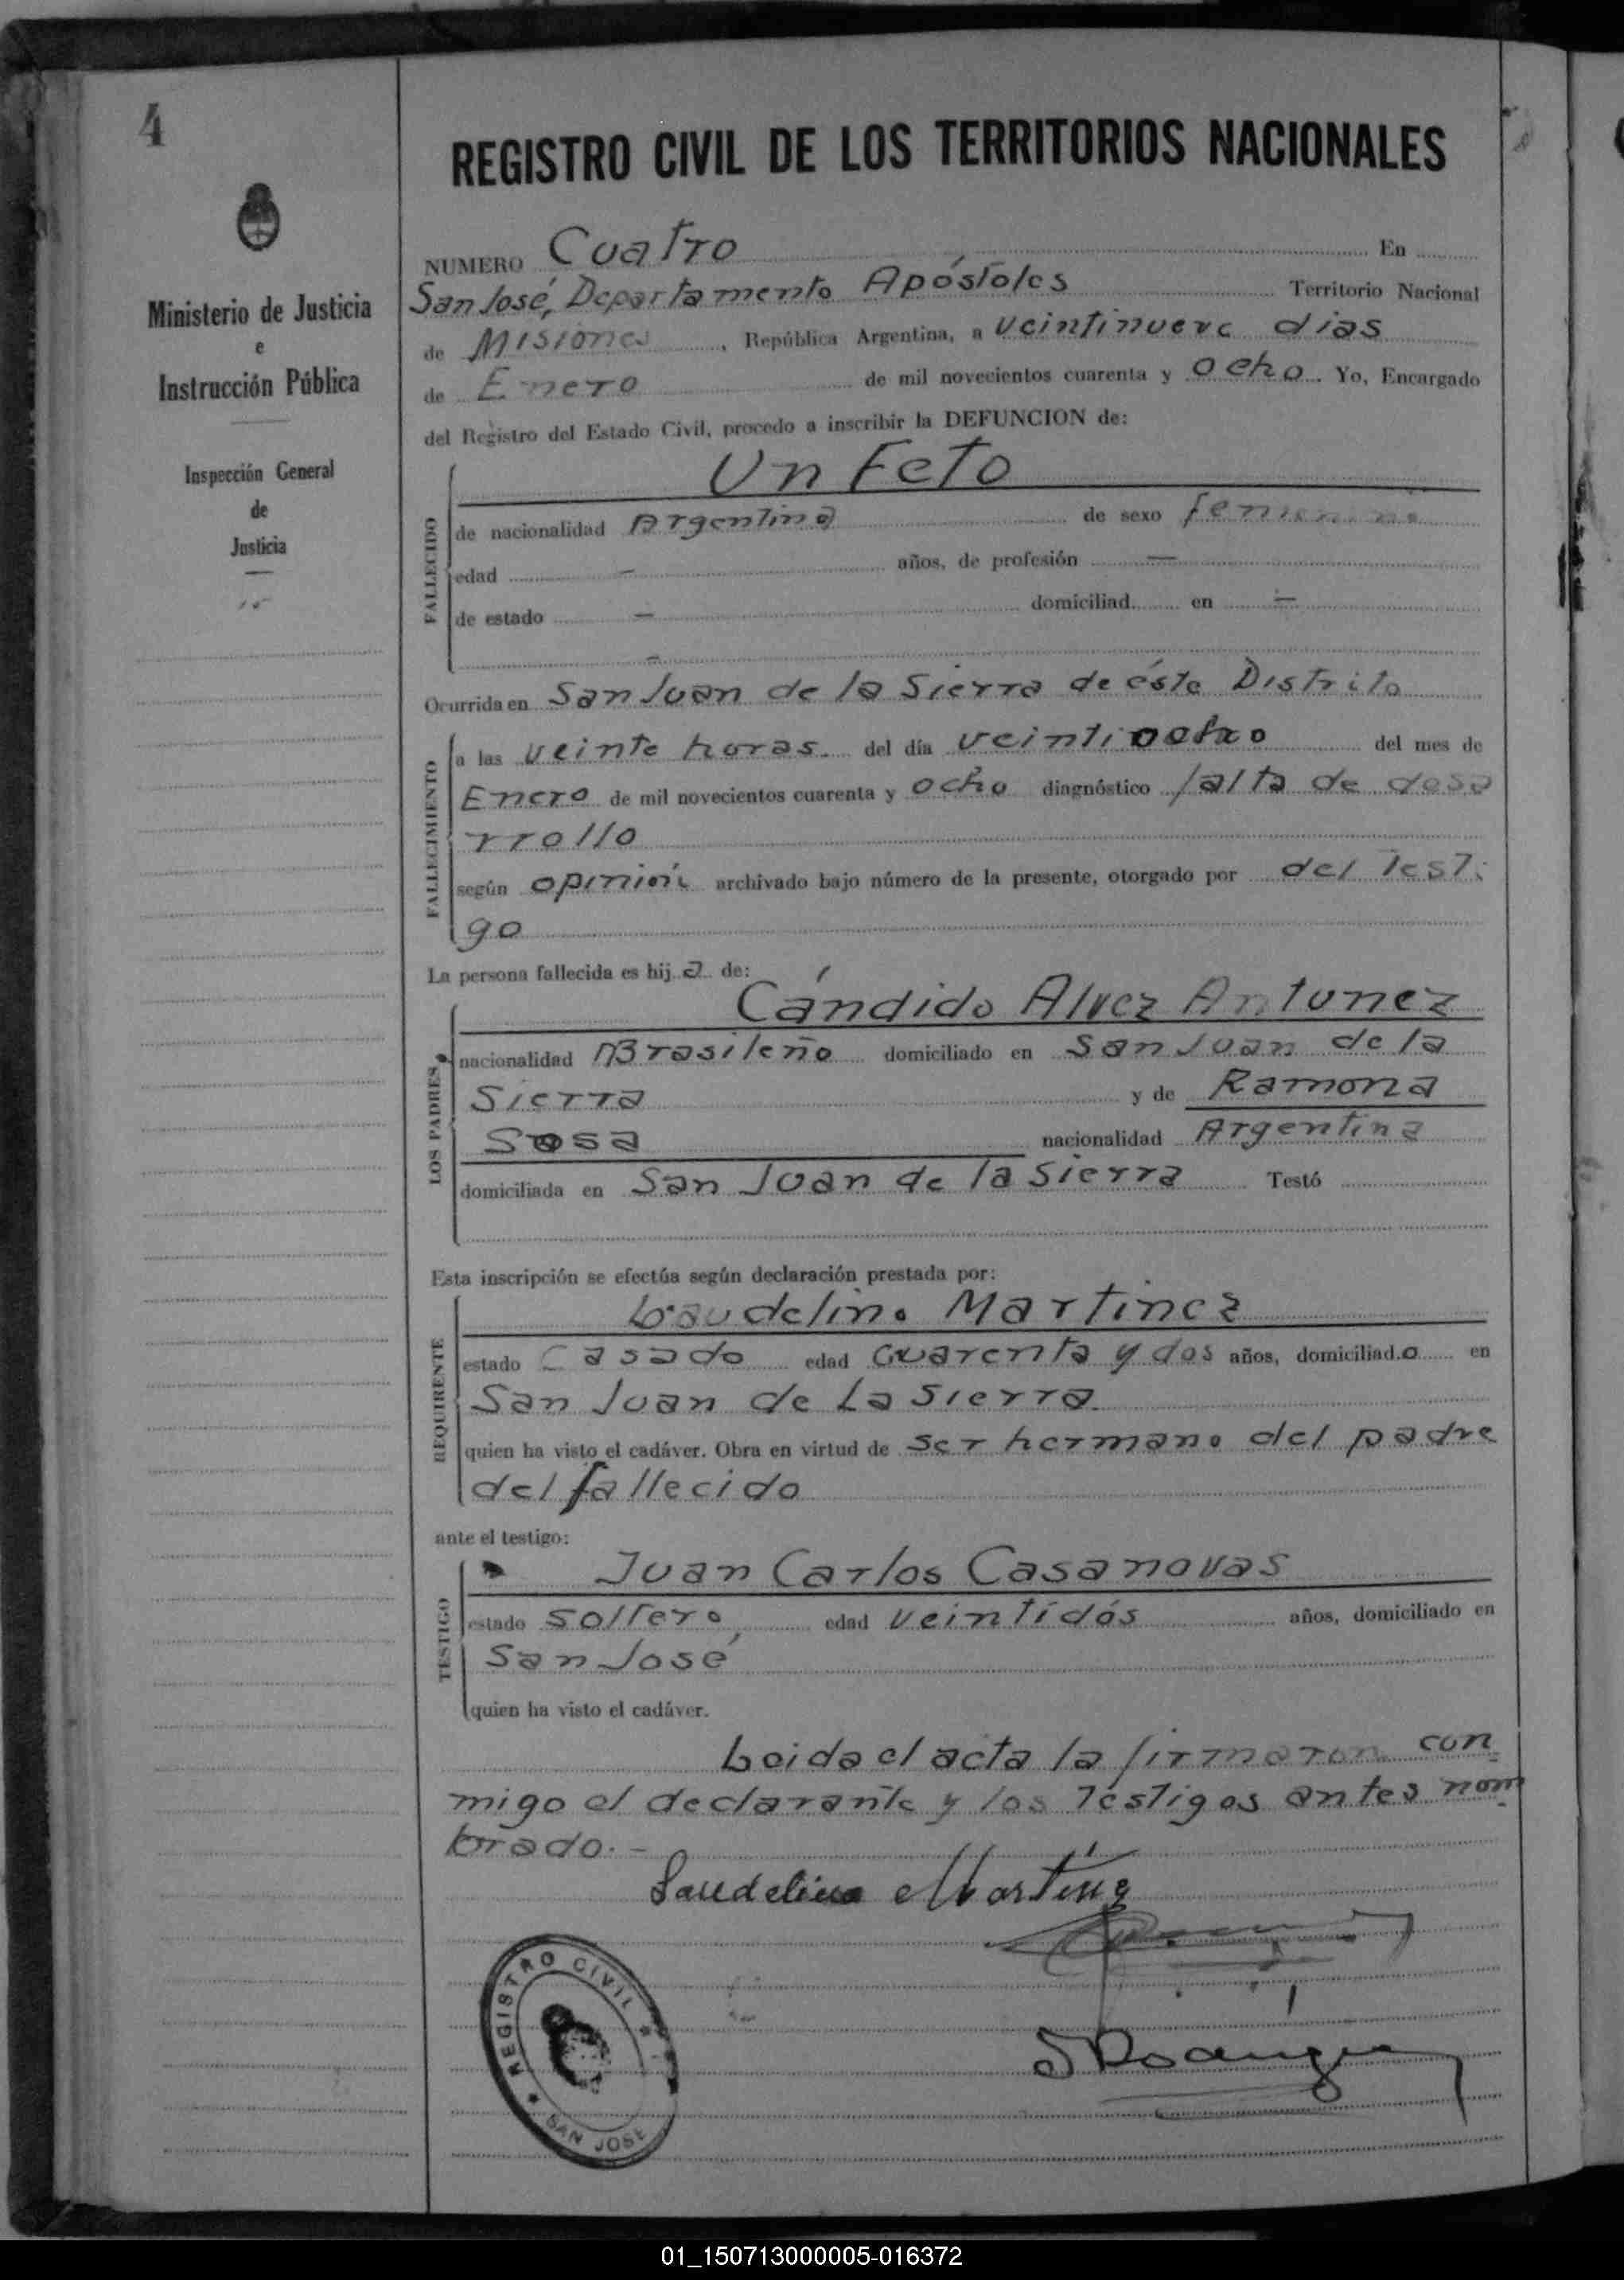 4
Ministerio de Justicia
e
Instrucción Pública
Inspección General
de
Justicia
REGISTRO CIVIL DE LOS TERRITORIOS NACIONALES
NUMERO Cuatro En
San José, Departamento Apóstoles Territorio Nacional
de Misiones, República Argentina, a veintinueve dias
de Enero de mil novecientos cuarenta y ocho. Yo, Encargado
del Registro del Estado Civil, procedo a inscribir la DEFUNCION de:
Un Feto
FALLECIDO
de nacionalidad Argentina de sexo femenino
edad — años, de profesión —
de estado — domiciliad en —
—
Ocurrida en San Juan de la Sierra de éste Distrito
FALLECIMIENTO
a las veinte horas. del día veintiocho del mes de
Enero de mil novecientos cuarenta y ocho diagnóstico falta de desa
rrollo
según opinión archivado bajo número de la presente, otorgado por del Testi
go
La persona fallecida es hija de:
Cándido Alvez Antunez
LOS PADRES
nacionalidad Brasileño domiciliado en San Juan de la
Sierra y de Ramona
Sosa nacionalidad Argentina
domiciliada en San Juan de la Sierra Testó
Esta inscripción se efectúa según declaración prestada por:
Laudelino Martinez
REQUIRENTE
estado Casado edad Cuarenta y dos años, domiciliado en
San Juan de La Sierra
quien ha visto el cadáver. Obra en virtud de ser hermano del padre
del fallecido
ante el testigo:
Juan Carlos Casanovas
TESTIGO
estado soltero edad veintidós años, domiciliado en
San José
quien ha visto el cadáver.
Leida el acta la firmaron con
migo el declarante y los Téstigos antes nom
brado. -
Laudelino Martinez
REGISTRO CIVIL
SAN JOSE
01_150713000005-016372